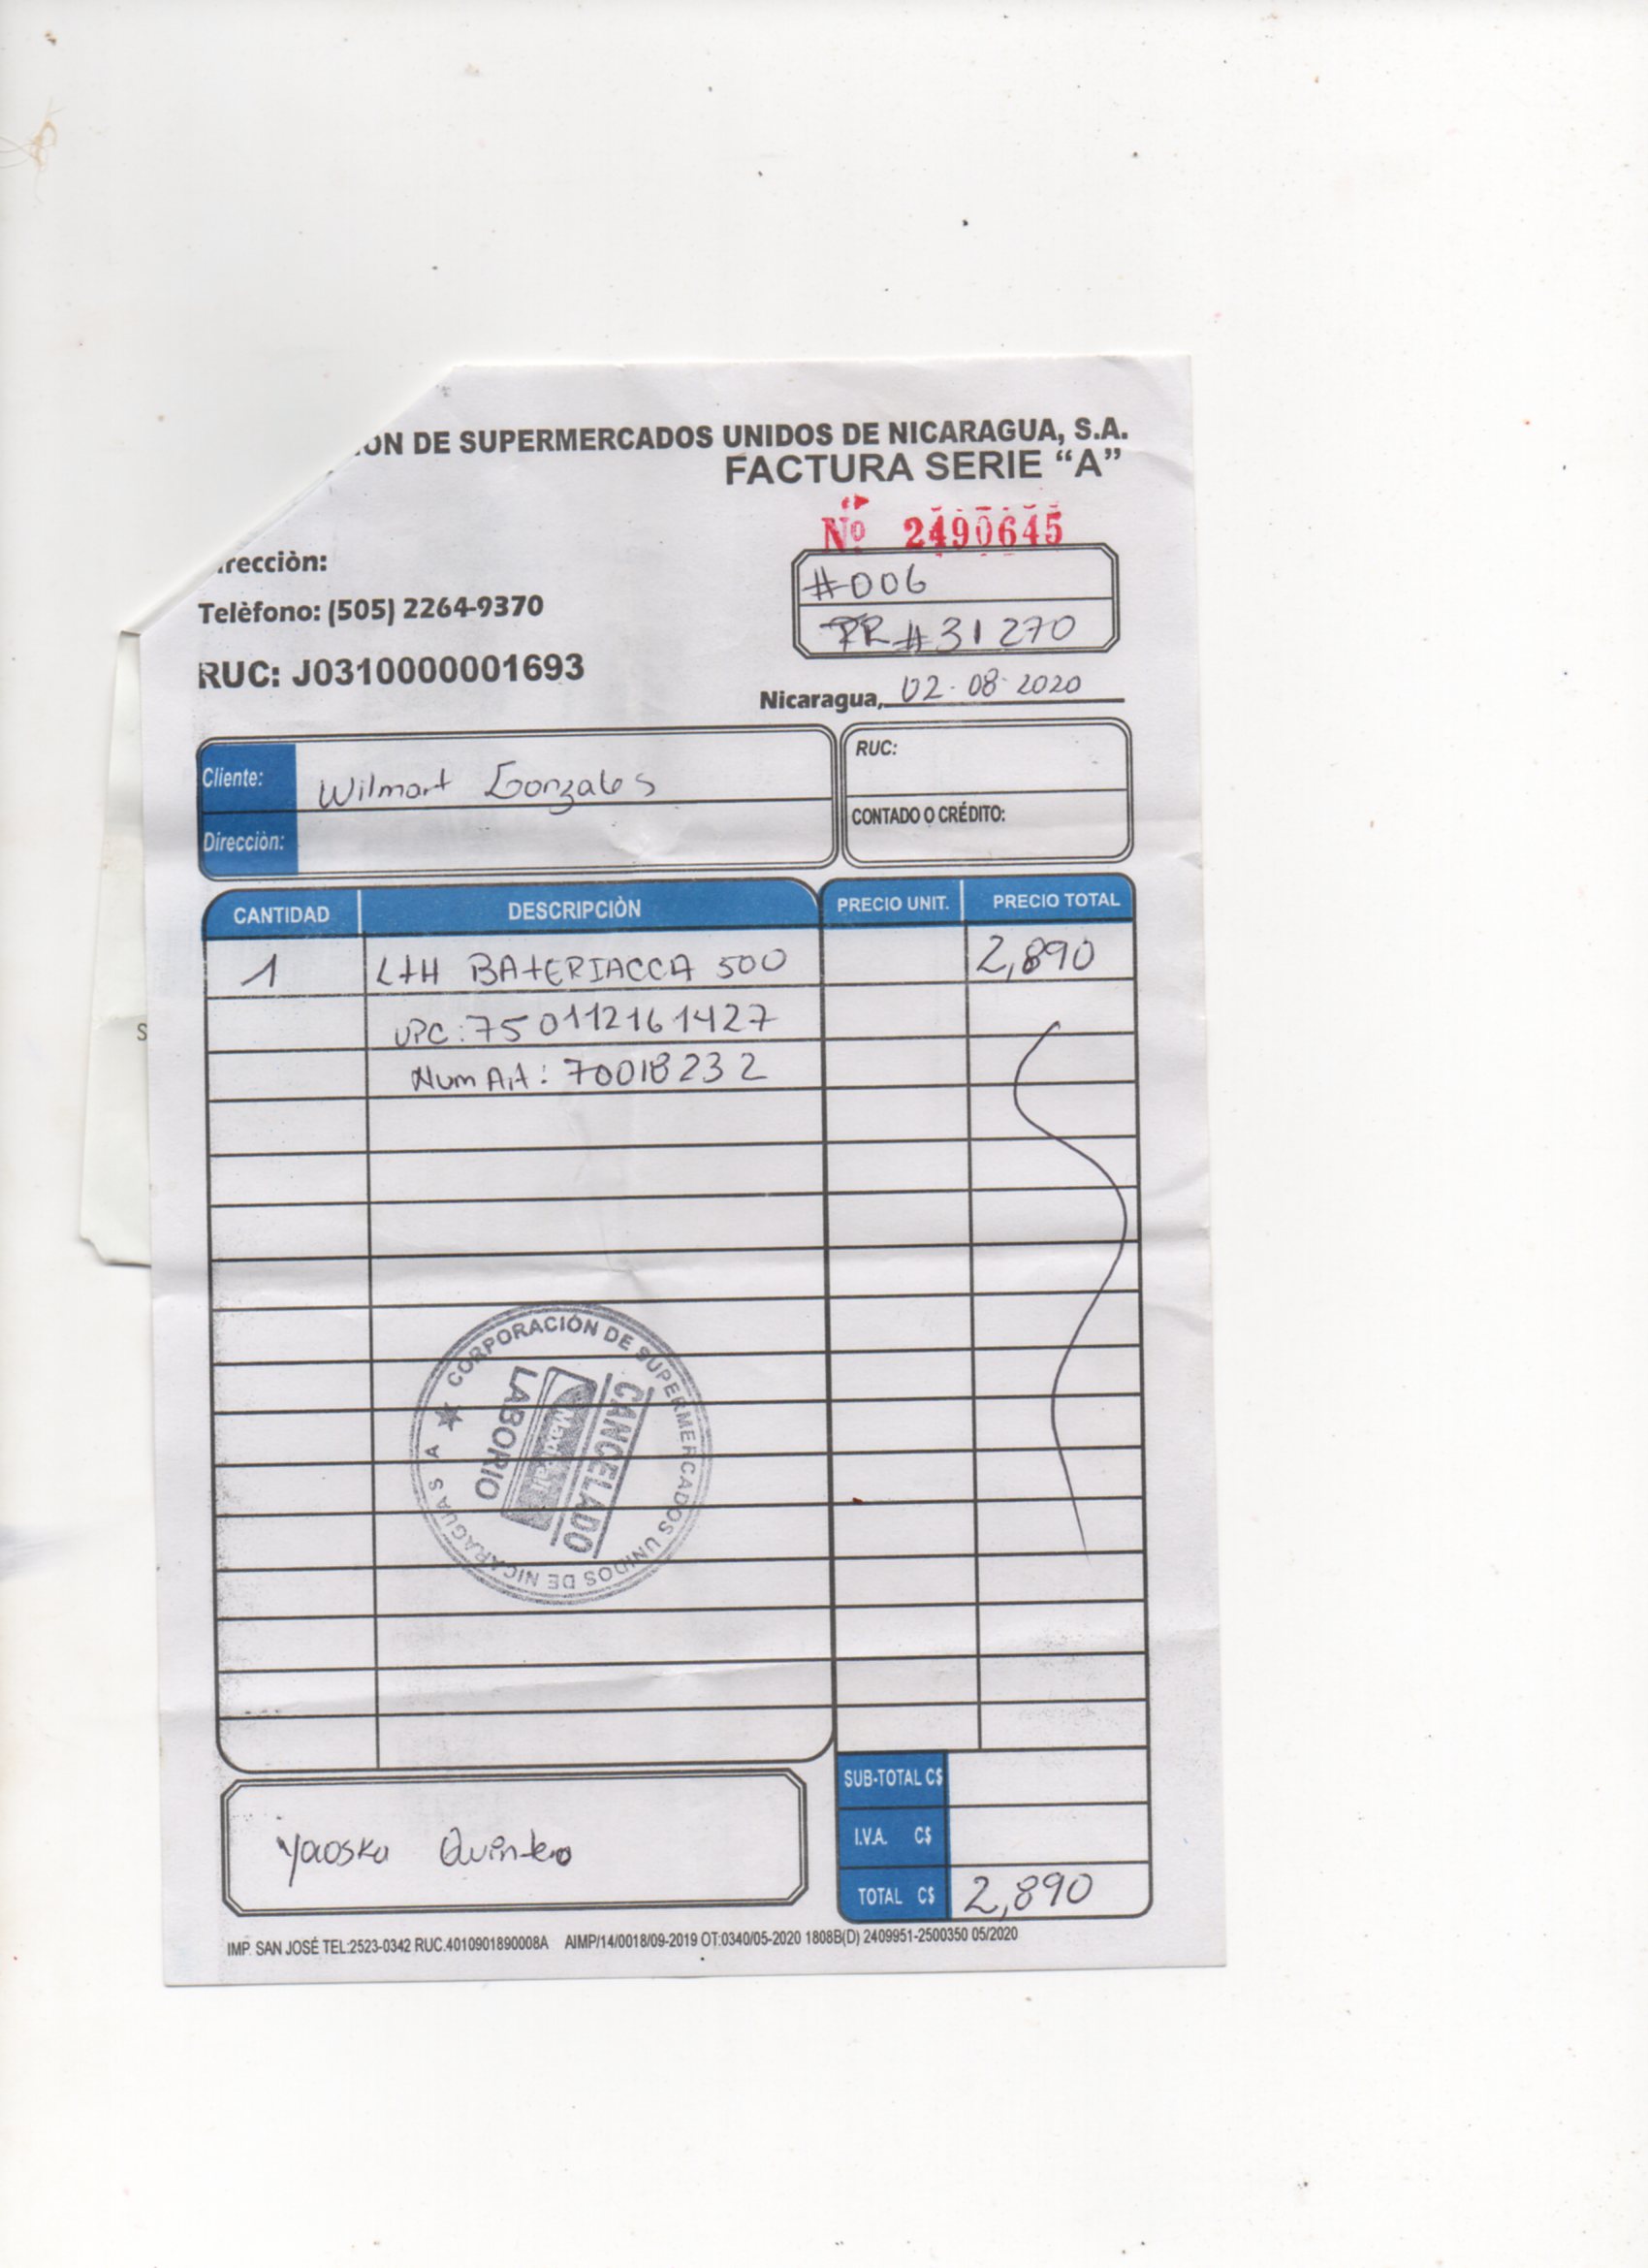 ÓN DE SUPERMERCADOS UNIDOS DE NICARAGUA, S.A.
FACTURA SERIE “A”
Nº 2490645
irecciòn:
#006
Telèfono: (505) 2264-9370
PR #31270
RUC: J0310000001693
Nicaragua, 02-08-2020
Cliente: Wilmart Gonzales
RUC:
Direcciòn:
CONTADO O CRÉDITO:
CANTIDAD DESCRIPCIÒN PRECIO UNIT. PRECIO TOTAL
1 LtH BAtERIACCA 500 2,890
UPC: 750112161427
Num Art: 70018232
S
CORPORACIÓN DE SUPERMERCADOS UNIDOS DE NICARAGUA S A
CANCELADO
LABORIO
SUB-TOTAL C$
I.V.A. C$
Yaoska Quintero
TOTAL C$ 2,890
IMP. SAN JOSÉ TEL:2523-0342 RUC.4010901890008A AIMP/14/0018/09-2019 OT:0340/05-2020 1808B(D) 2409951-2500350 05/2020